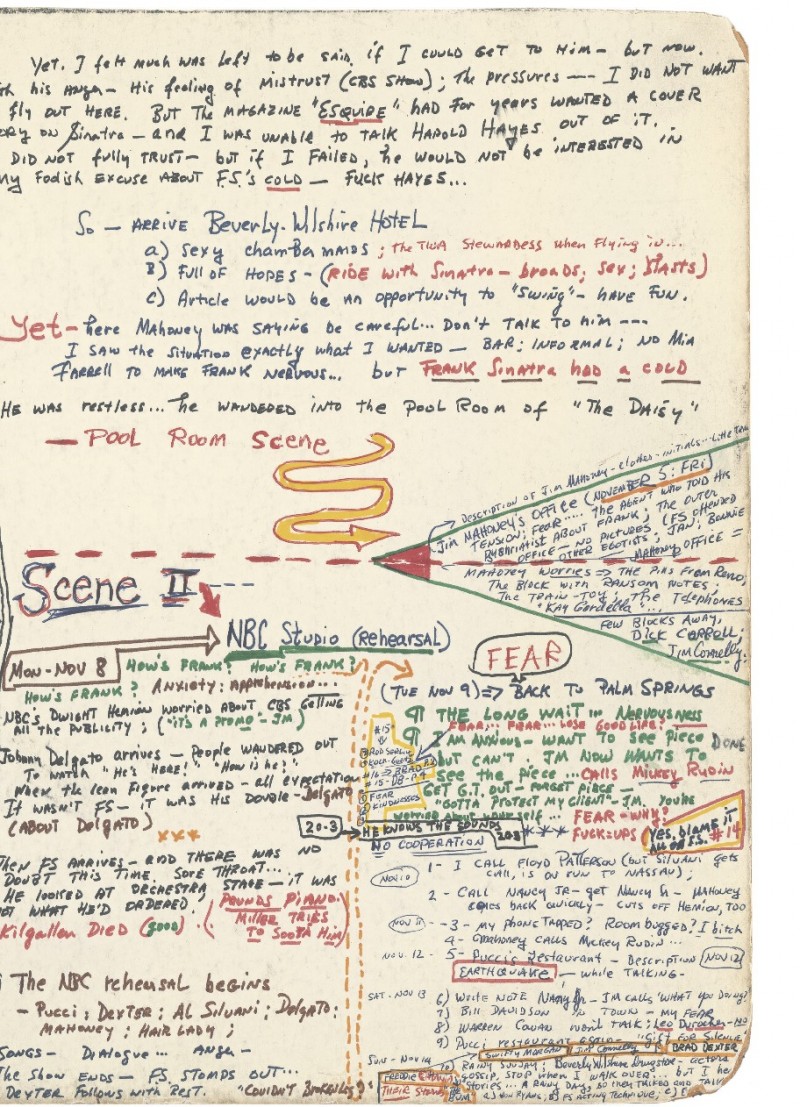 Yet. I felt much was left to be said, if I could get to him - but now.
his anger - His feeling of Mistrust (CBS SHOW); The pressures --- I DID NOT WANT
fly OUT HERE. BUT THE MAGAZINE "ESQUIRE" HAD FOR YEARS WANTED A COVER
ON Sinatra - and I WAS UNABLE TO TALK HAROLD HAYES OUT OF IT.
DID NOT fully TRUST - but if I FAILED, he WOULD NOT be INTERESTED IN
my Foolish Excuse ABOUT F.S.'s COLD - FUCK HAYES...
So - ARRIVE Beverly-Wilshire HOTEL
a) Sexy chamber MAIDS; the TWA Stewardess when flying in...
B) FULL OF HOPES - (RIDE WITH Sinatra - broads; sex;
C) Article WOULD BE AN opportunity to "Swing" - HAVE FUN.
Yet - here Mahoney WAS SAYING BE CAREFUL... DON'T TALK TO him ---
I SAW the SITUATION exactly what I WANTED - BAR: INFORMAL; NO Mia
FARRELL TO MAKE FRANK NERVOUS... but FRANK Sinatra had a COLD
HE WAS restless... he WANDERED into the Pool Room of "The DAISY"
- POOL ROOM Scene
Description of Jim Mahoney - clothes - initials - Little
Jim MAHONEY'S OFFICE (NOVEMBER 5: FRI)
TENSION; FEAR..... THE AGENT WHO TOLD HIS
ABOUT FRANK; THE OUTER
OFFICE - NO PICTURES (FS OFFENDED
OTHER EGOTISTS; JAN, BONNIE
Mahoney OFFICE =
MAHONEY WORRIES => THE PIX FROM RENO;
The Block with RANSOM NOTES;
THE TRAIN-TOY; The Telephones
"Kay Gardella"...
FEW BLOCKS AWAY,
DICK CARROLL;
Jim Connelly.
Scene II
NBC Studio (rehearsal)
MON-NOV 8
HOW'S FRANK? HOW'S FRANK?
HOW'S FRANK? ANXIETY: Apprehension...
NBC'S DWIGHT HEMION WORRIED ABOUT CBS GETTING
All the PUBLICITY; ("it's A PROMO" - JM)
Johnny Delgato arrives - People WANDERED OUT
To WATCH "He's HERE!" "How is he?"
When the lean Figure arrived - all expectation
It WASN'T FS - it WAS his Double - Delgato
(ABOUT Delgato)
Then FS ARRIVES - and THERE WAS NO
Doubt THIS TIME. SORE THROAT...
HE LOOKED AT ORCHESTRA, STAGE - it WAS
NOT WHAT HE'D ORDERED.
Kilgallen Died (good)
(POUNDS PIANO.
MILLER TRIES
TO SOOTH HIM)
The NBC rehearsal begins
- Pucci; Dexter; Al Silvani; Delgato;
MAHONEY; HAIR LADY;
SONGS - DIALOGUE ... ANGER -
The Show ENDS - F.S. STOMPS OUT...
DEXTER FOLLOWS with REST.
FEAR
(TUE NOV 9) => BACK TO PALM SPRINGS
¶ THE LONG WAIT ... NERVOUSNESS
FEAR... FEAR... LOSE GOOD LIFE?
¶ I AM ANXIOUS - WANT TO SEE PIECE DONE
BUT CAN'T. JM NOW WANTS TO
See the piece ... CALLS MICKEY RUDIN
GET G.T. OUT - FORGET PIECE -
"GOTTA PROTECT MY CLIENT" - JM.
worried about yourself...
FEAR - WHY?
FUCK=UPS
YES, blame it
ALL ON F.S. #14
#15
FEAR
KINDNESSES
20-3
HE KNOWS THE SOUNDS
NO COOPERATION
NOV 10
1 - I CALL FLOYD PATTERSON (but Silvani gets
CALL, IS ON RUN TO NASSAU);
2 - CALL NANCY JR - get NANCY Sr - MAHONEY
COMES BACK QUICKLY - CUTS OFF HEMION, TOO
NOV 11
3 - My PHONE TAPPED? ROOM bugged? I bitch
4 - Mahoney CALLS Mickey Rudin...
NOV. 12 - 5 - Pucci's Restaurant - Description (NOV 12)
EARTHQUAKE - while TALKING -
SAT. NOV 13
6) Write NOTE Nancy Jr - JM CALLS 'WHAT you Doing?'
7) Bill DAVIDSON IN TOWN - my FEAR
8) WARREN COWAN won't TALK; Leo Durocher - NO
9) Pucci restaurant again - "Gift FOR Silence"
SUN - NOV 14
SWIFTY MORGAN
Jim Connelly
BRAD DEXTER
10) RAINY SUNDAY; Beverly Wilshire Drugstore - ACTORS
GOSSIP, STOP when I WALK OVER... but I he
FREDDIE
THEIR
Stories... A RAINY DAY, SO they TALKED and TALK
BUM"